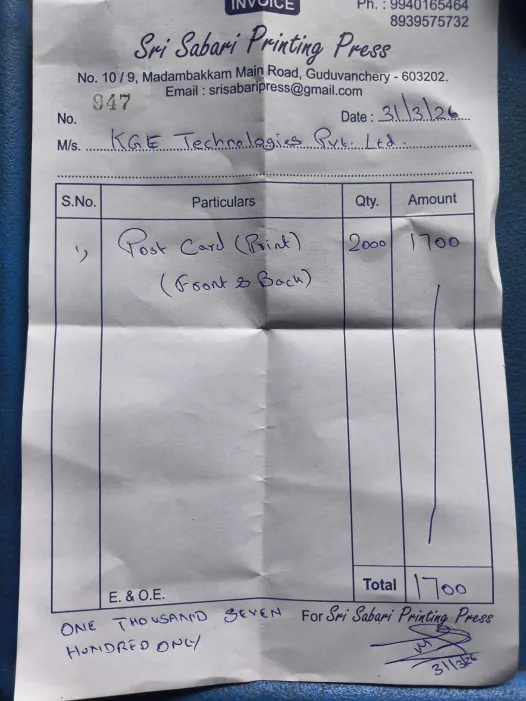 INVOICE
Ph. : 9940165464
8939575732
Sri Sabari Printing Press
No. 10 / 9, Madambakkam Main Road, Guduvanchery - 603202.
Email : srisabaripress@gmail.com
No. 947 Date : 31/3/26
M/s. KGE Technologies Pvt. Ltd.
S.No. Particulars Qty. Amount
1) Post Card (Print) 2000 1700
(Front & Back)
E. & O.E. Total 1700
ONE THOUSAND SEVEN
HUNDRED ONLY
For Sri Sabari Printing Press
31/3/26